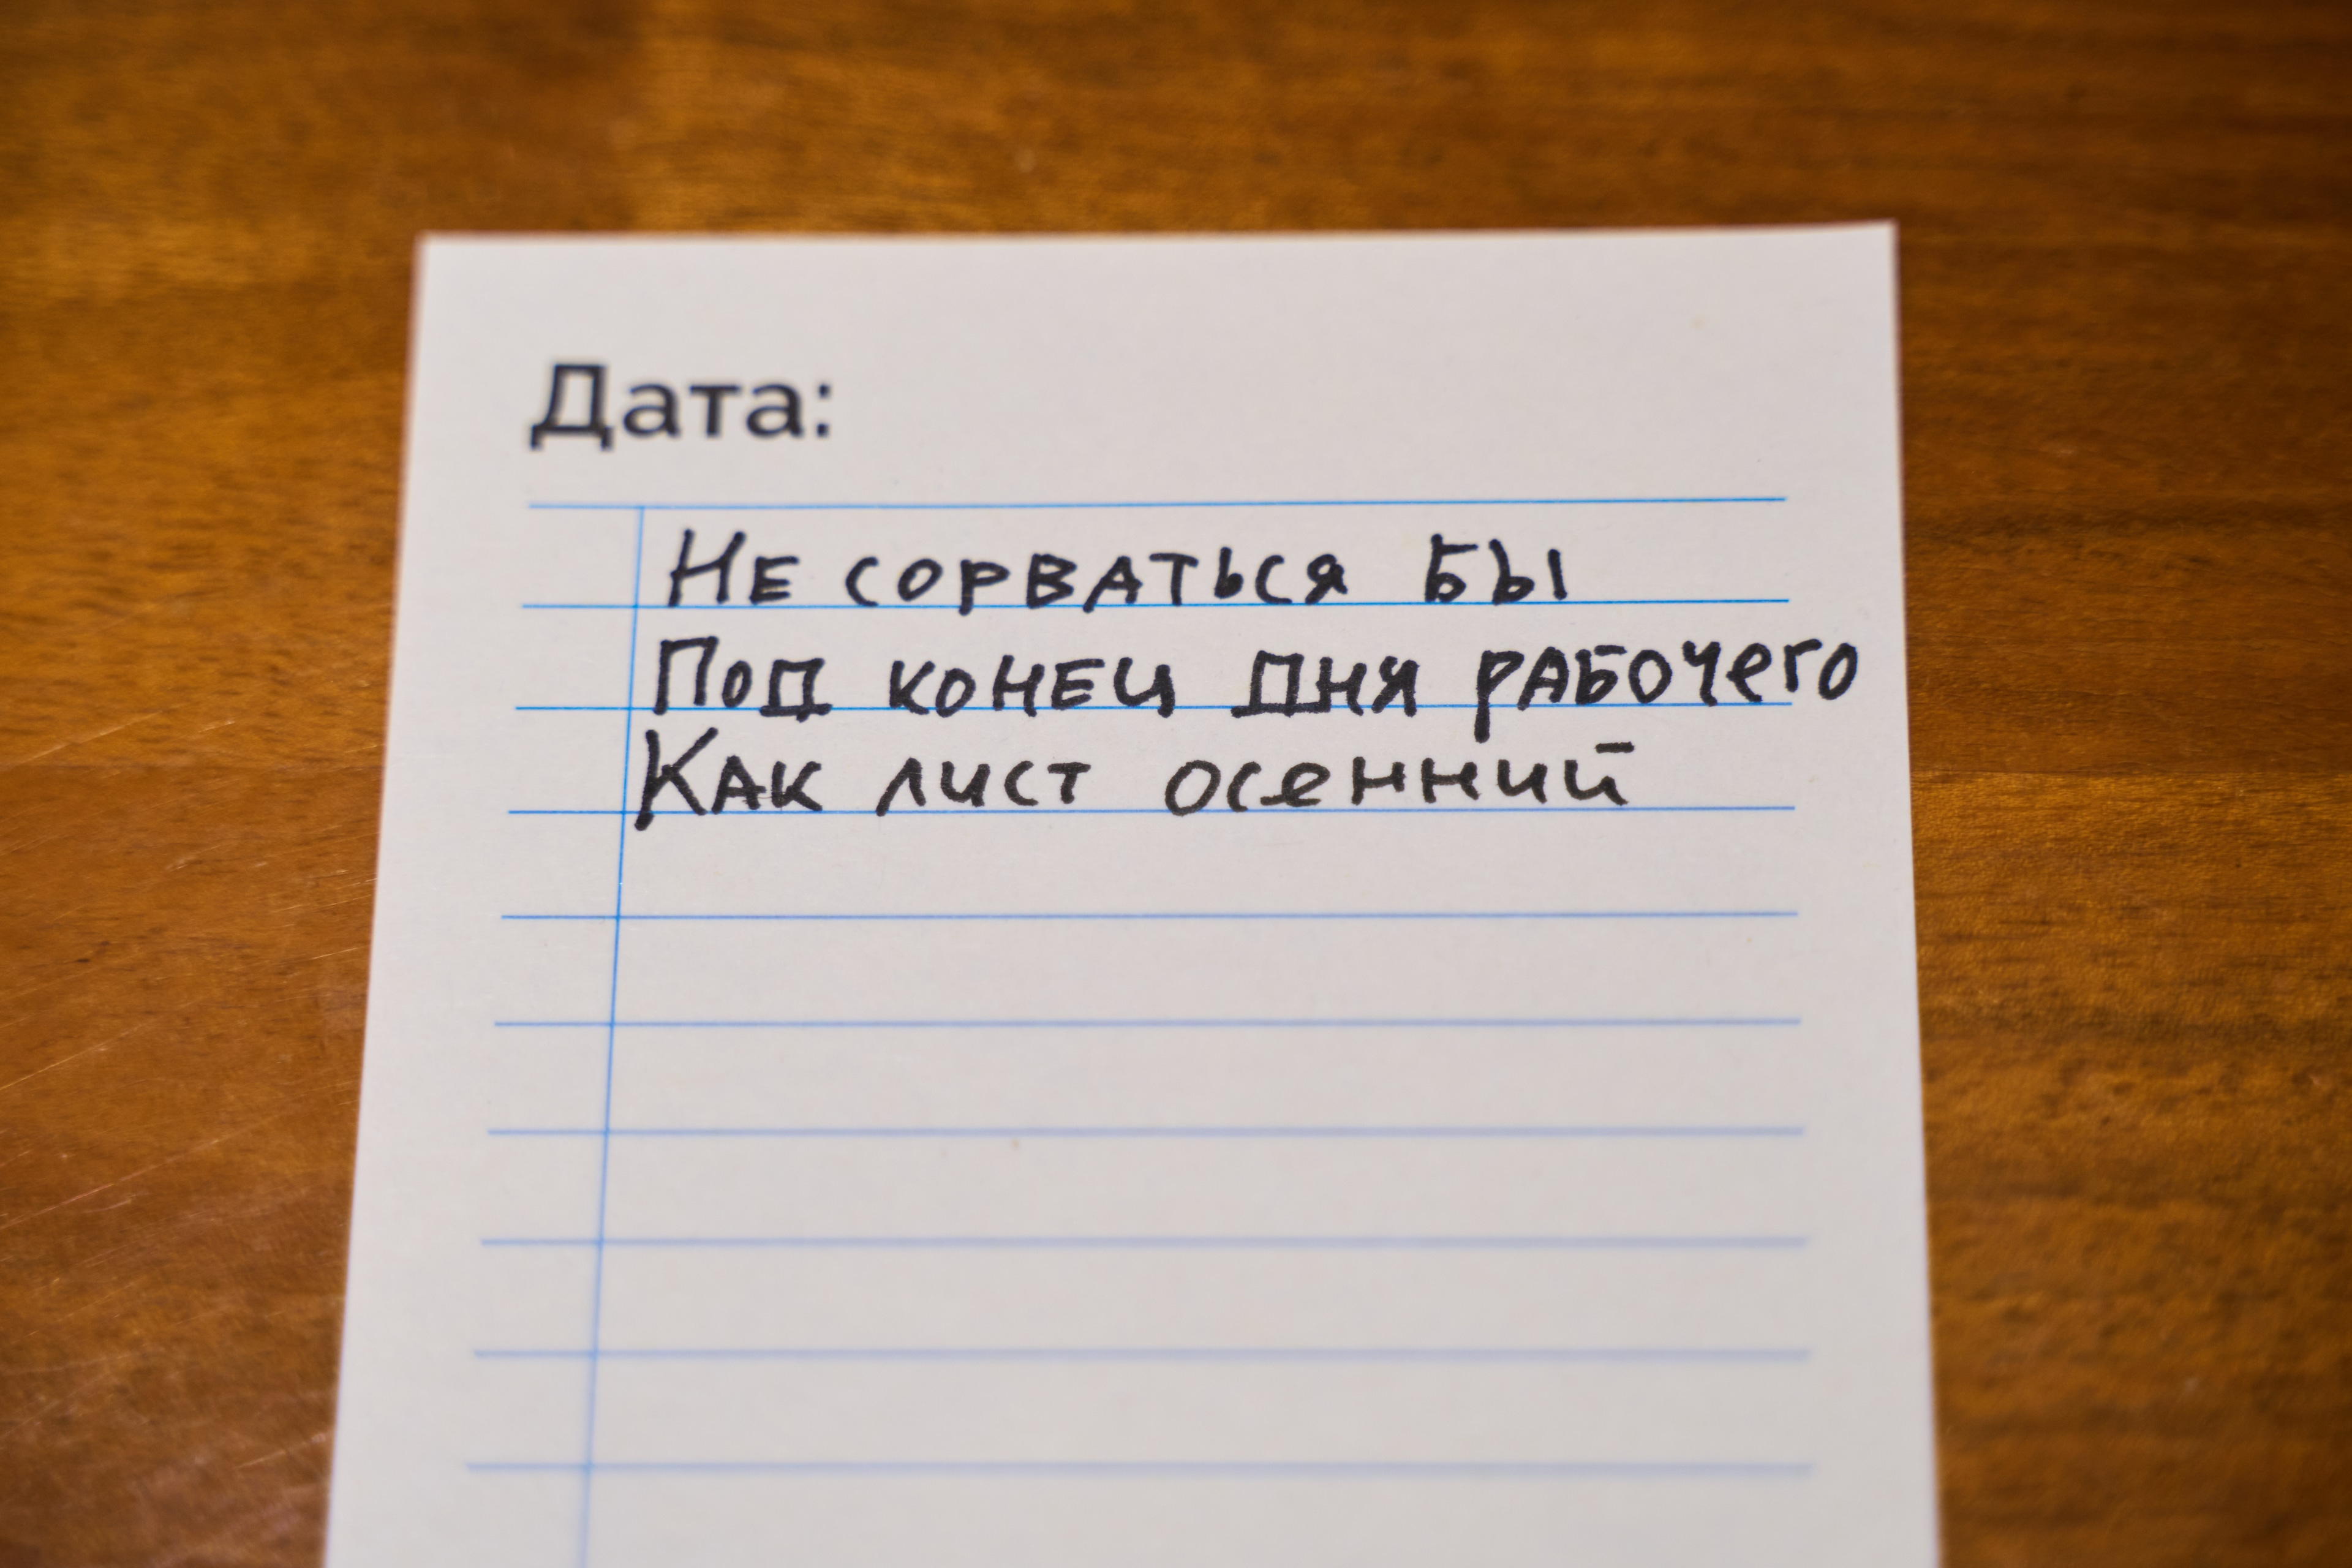 Дата:
Не сорваться бы
Под конец дня рабочего
Как лист осенний